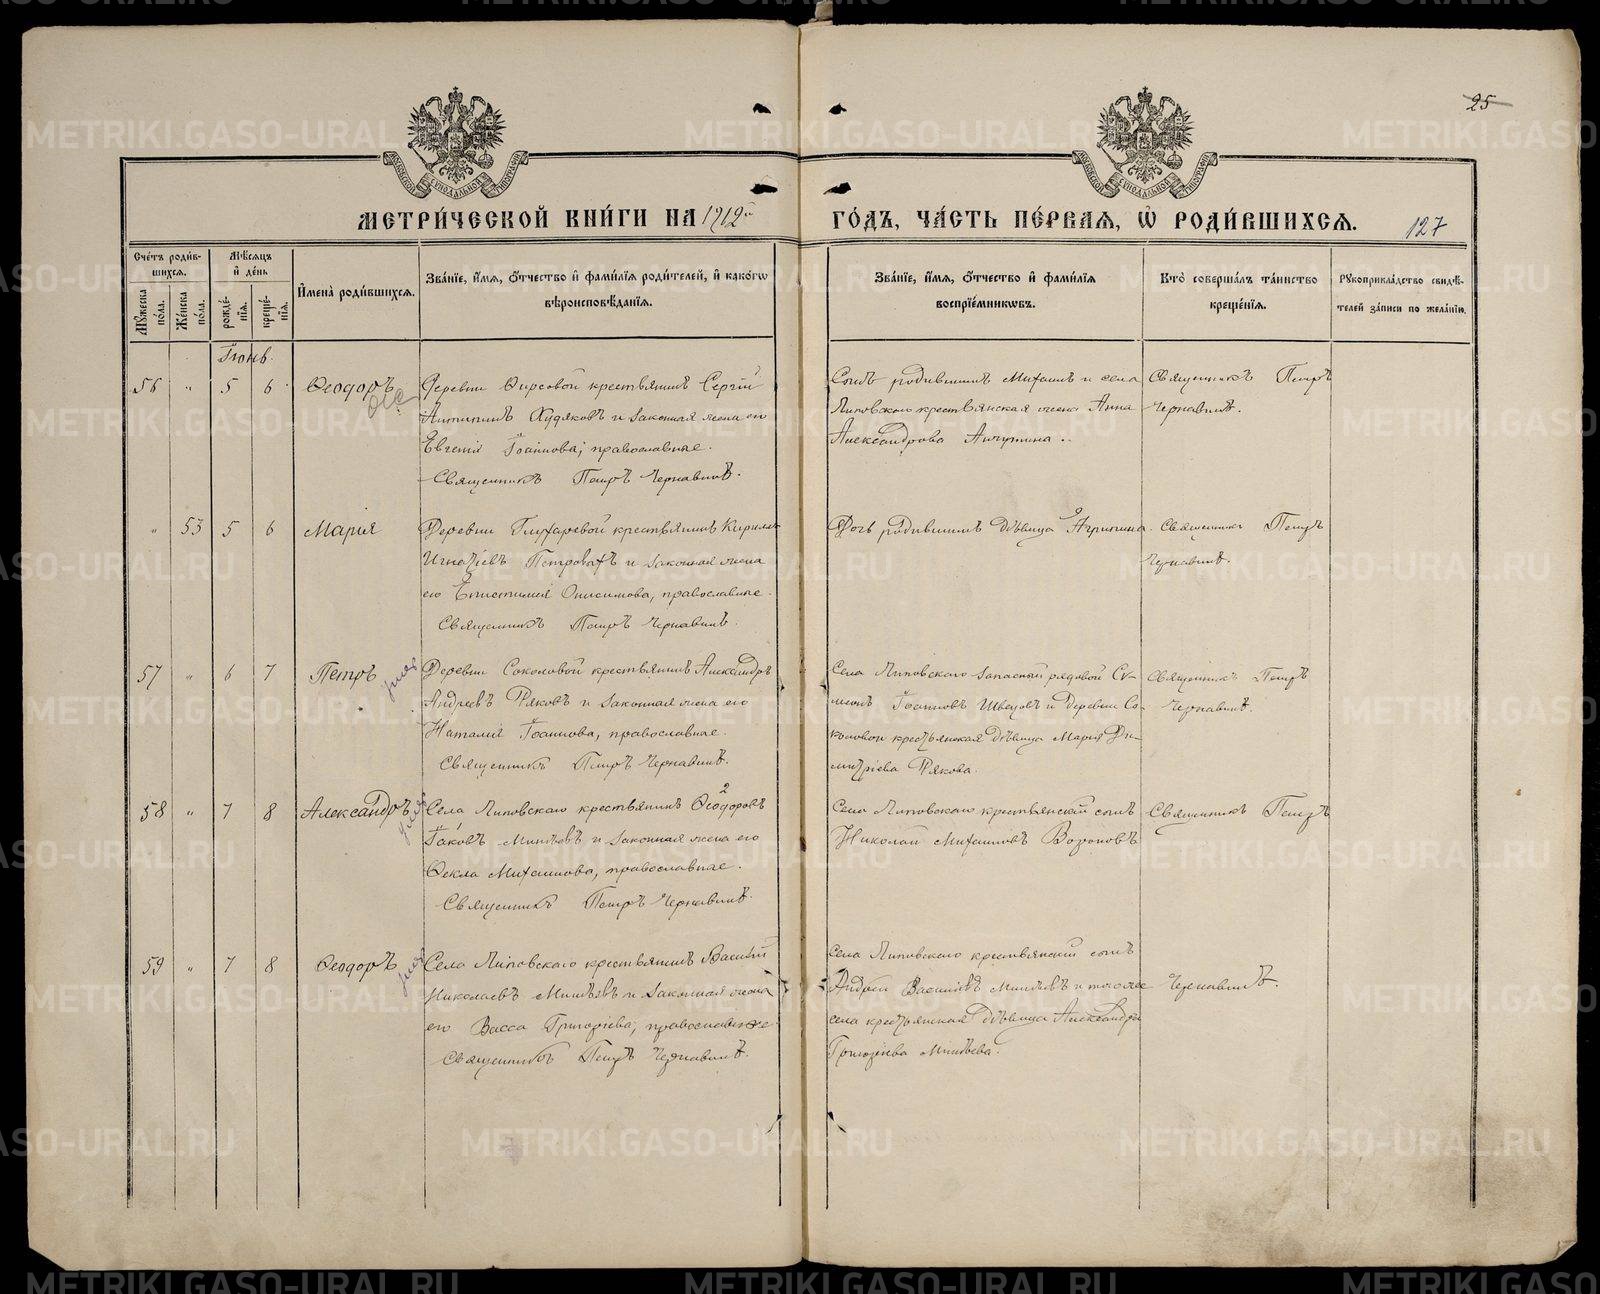 25
МЕТРИ́ЧЕСКОЙ КНИ́ГИ НА 1912й ГО́ДЪ, ЧА́СТЬ ПЕ́РВАЯ, Ѡ РОДИ́ВШИХСЯ.
127
Сче́тъ роди́в-
шихся.
Мѣ́сяцъ
и҆ де́нь
Мꙋ́жеска
по́ла.
Же́нска
по́ла.
рожде́-
нїя.
креще́-
нїя.
И҆мена̀ роди́вшихся.
Зва́нїе, и҆́мя, ѻ҆́тчество и҆ фами́лїя роди́телей, и҆ како́гѡ
вѣроисповѣ́данїя.
Зва́нїе, и҆́мя, ѻ҆́тчество и҆ фами́лїя
воспрїе́мникѡвъ.
Кто̀ соверша́лъ та́инство
креще́нїя.
Рꙋкоприкла́дство свидѣ́-
телей за́писи по жела́нїю.
Іюнь.
56 " 5 6 Ѳеодоръ
Деревни Фирсовой крестьянинъ Сергій
Антипинъ Худяковъ и законная жена его
Евгенія Іоаннова; православные.
Священникъ Петръ Чернавинъ.
Сынъ родившимъ Михаилъ и села
Липовскаго крестьянская жена Анна
Александрова Ачутина.
Священникъ Петръ
Чернавинъ.
" 53 5 6 Марія
Деревни Глухаревой крестьянинъ Кирилъ
Игнатіевъ Петровыхъ и законная жена
его Епистимія Онисимова, православные.
Священникъ Петръ Чернавинъ.
Дочь родившимъ дѣвица Агрипина
Священникъ Петръ
Чернавинъ.
57 " 6 7 Петръ
Деревни Соколовой крестьянинъ Александръ
Андреевъ Ряковъ и законная жена его
Наталія Іоаннова, православные.
Священникъ Петръ Чернавинъ.
Села Липовскаго запасный рядовой Си-
меонъ Іоанновъ Швецовъ и деревни Со-
коловой крестьянская дѣвица Марія Ди-
митріева Рякова.
Священникъ Петръ
Чернавинъ.
58 " 7 8 Александръ
Села Липовскаго крестьянинъ Ѳеодоровъ 2
Іаковъ Минѣевъ и законная жена его
Ѳекла Михаилова, православные.
Священникъ Петръ Чернавинъ.
Села Липовскаго крестьянскій сынъ
Николай Михаиловъ Вороновъ
Священникъ Петръ
59 " 7 8 Ѳеодоръ
Села Липовскаго крестьянинъ Василій
Николаевъ Минѣевъ и законная жена
его Васса Григоріева, православные
Священникъ Петръ Чернавинъ.
Села Липовскаго крестьянскій сынъ
Андрей Васильевъ Минѣевъ и того же
села крестьянская дѣвица Александра
Григоріева Минѣева.
Чернавинъ.
METRIKI.GASO-URAL.RU